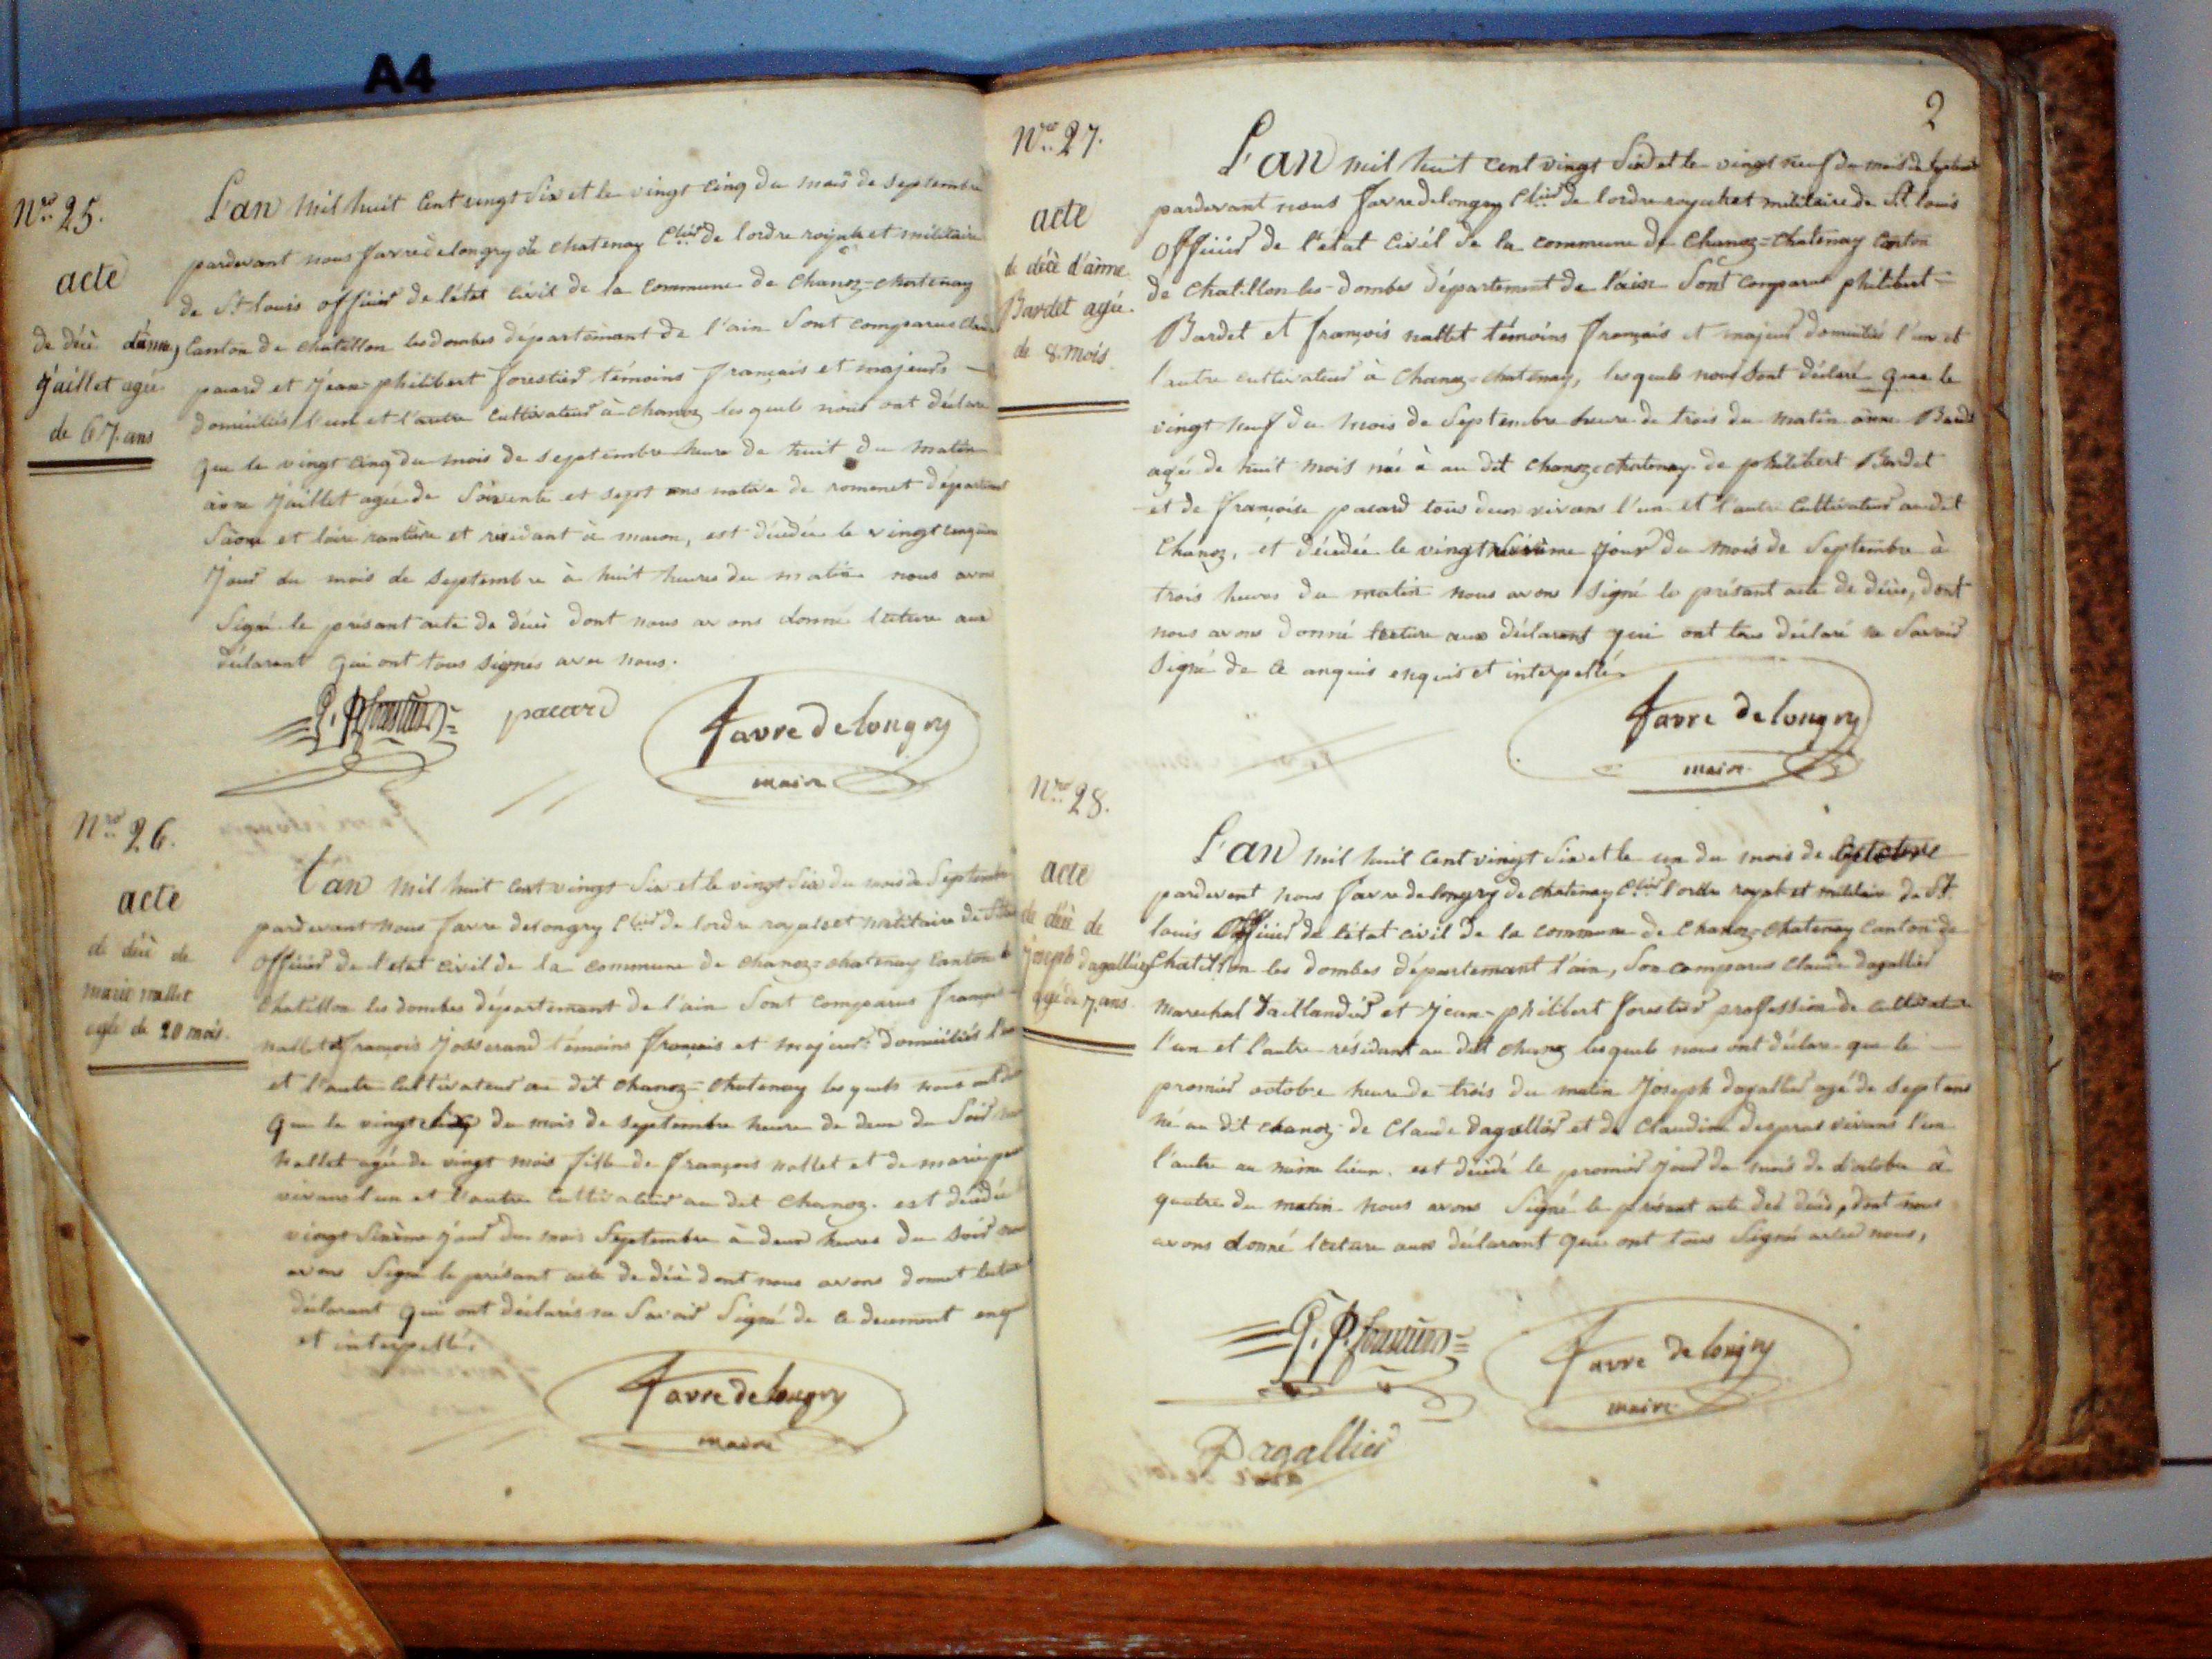 A4
Nro 25.
acte
de décè d'anne
Jaillet agée
de 67. ans
L'an mil huit Cent vingt Six et le vingt cinq du mois de septembre
pardevant nous favre delongry de chatenay Clier de lordre royale et militaire
de St louis officier de l'état civil de la commune de chanoz=chatenay
Canton de châtillon les dombes département de l'ain Sont comparus
pacard et Jean philibert forestier témoins français et majeurs
domiciliés l'un et l'autre cultivateur à chanoz les quels nous ont déclaré
que le vingt cinq du mois de septembre heure de huit du matin
anne Jaillet agée de Soixente et sept ans native de romenet département
Saône et loire rantière et résidant à macon, est décédée le vingt cinquième
Jour du mois de septembre à huit heures du matin nous avons
Signé le présant acte de décè dont nous avons donné lecture aux
déclarant qui ont tous signés avec nous.
pacard
favre de longry
maire
Nro 26.
acte
de décè de
marie nallet
agée de 20 mois.
L'an mil huit cent vingt Six et le vingt Six du mois de Septembre
pardevant nous favre delongry Clier de lordre royale et militaire de St
officier de l'etat civil de la commune de chanoz=chatenay canton de
Chatillon les dombes département de l'ain Sont comparus françois
nallet et françois Josserand témoins français et majeurs domiciliés l'un
et l'autre Cultivateur au dit chanoz=chatenay les quels nous ont
que le vingt du mois de septembre heure de deux du Soir
nallet agée de vingt mois fille de françois nallet et de marie
vivans l'un et l'autre Cultivateur au dit chanoz. est décédée
vingt Sixième Jour du mois Septembre à deux heures du Soir
avons Signé le présant acte de décè dont nous avons donnet
déclarant qui ont déclarés ne Savoir Signé de ce
et interpellé.
favre de longry
maire
2
Nro 27.
acte
de décè d'anne
Bardet agée
de 8. mois.
L'an mil huit cent vingt Six et le vingt neuf du mois de
pardevant nous favre delongry Clier de lordre royale et militaire de St louis
officier de l'état civil de la commune de chanoz=chatenay canton
de chatillon les-dombes département de l'ain Sont comparus philibert=
Bardet et françois nallet témoins français et majeurs domiciliés l'un et
l'autre cultivateur à chanoz-chatenay, les quels nous sont déclaré que le
vingt neuf du mois de Septembre heure de trois du matin anne
agée de huit mois née à au dit chanoz=chatenay de philibert Bardet
et de françoise pacard tous deux vivans l'un et l'autre Cultivateur audit
chanoz, et décédée le jour du mois de Septembre à
trois heures du matin nous avons Signé le présant acte de décès, dont
nous avons donné lecture aux déclarant qui ont tous déclaré ne Savoir
Signé de ce anquis enquis et interpellé.
favre de longry
maire
Nro 28.
acte
de décè de
Joseph dagallier
agé de 7. ans.
L'an mil huit cent vingt Six et le un du mois de octobre
pardevent nous favre delongry de chatenay Clier l'ordre royal et militaire de St
louis officier de l'état civil de la commune de chanoz=chatenay canton de
chatillon les dombes département l'ain, Son comparus Claude dagallier
marechal taillandier et Jean-philibert forestier profession de cultivateur
l'un et l'autre résidant au dit chanoz les quels nous ont déclare que le
promier octobre heure de trois du matin Joseph dagallier agé de sept ans
né au dit chanoz de Claude dagallier et de Claudine despras vivans l'un
l'autre au même lieux. est décédé le promier Jour du mois de d'octobre à
quatre du matin nous avons Signé le présant acte de décès, dont nous
avons donné lecture aux déclarant qui ont tous Signé nous,
favre de longry
maire
Dagallier